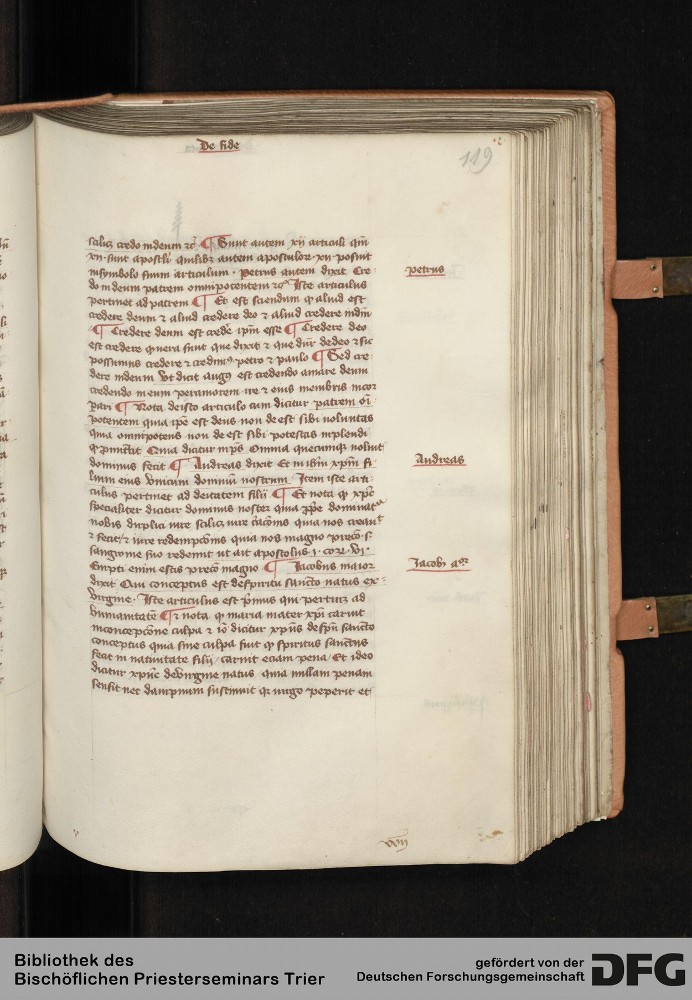 De fide
119
scilicz credo in deum ꝛc̄ ¶ Sunt autem xij articuli qm̄
xij sunt apostoli quilibz autem apostolorꝝ xij posuit
in symbolo suum articulum · Petrus autem dixit Cre-
do in deum patrem omnipotentem ꝛc̄ Iste articulus
pertinet ad patrem ¶ Et est sciendum ꝙ aliud est
credere deum ⁊ aliud credere deo ⁊ aliud credere in dm̄
¶ Credere deum est credere ip̄m esse ¶ Credere deo
est credere ꝙ vera sunt que dixit ⁊ que dicūtur de deo ⁊ sic
possumus credere ⁊ credimꝰ petro ⁊ paulo ¶ Sed cre-
dere in deum Vt dicit augꝰ est credendo amare deum
credendo in eum per amorem ire ⁊ eius membris incor
pari ¶ Nota de isto articulo cum dicitur patrem oī-
potentem quia ip̄e est deus non deest sibi voluntas
quia omnipotens non deest sibi potestas implendi
Quia dicitur in ps̄ Omnia quecumqꝫ voluit
dominus fecit ¶ Andreas dixit Et in ihm̄ xpm̄ fi-
lium eius vnicum dominū nostrum Item iste arti-
culus pertinet ad deitatem filii ¶ Et nota ꝙ xp̄c
specialiter dicitur dominus noster quia dominatᵉ
nobis duplici iure scilicz iure quia nos creauit
⁊ fecit ⁊ iure redempcōis quia nos magno precō s
sanguine suo redemit ut ait apostolus j · cor · vj ·
Empti enim estis precō magno ¶ Jacobus maior
dixit Qui conceptus est de spiritu sancto natus ex
virgine · Iste articulus est pͥmus qui pertinet ad
humanitatē ¶ Et nota ꝙ maria mater xpi caruit
in concepcōne culpa ⁊ iō dicitur xpūs de spū sancto
conceptus quia sine culpa fuit ꝙ spiritus sanctus
fecit in natiuitate filii caruit eciam pena Et ideo
dicitur xpūc de virgine natus quia nullam penam
sensit nec dampnum sustinuit qꝛ virgo peperit et
petrus
Andreas
Jacobi
Bibliothek des
Bischöflichen Priesterseminars Trier
gefördert von der
Deutschen Forschungsgemeinschaft
DFG